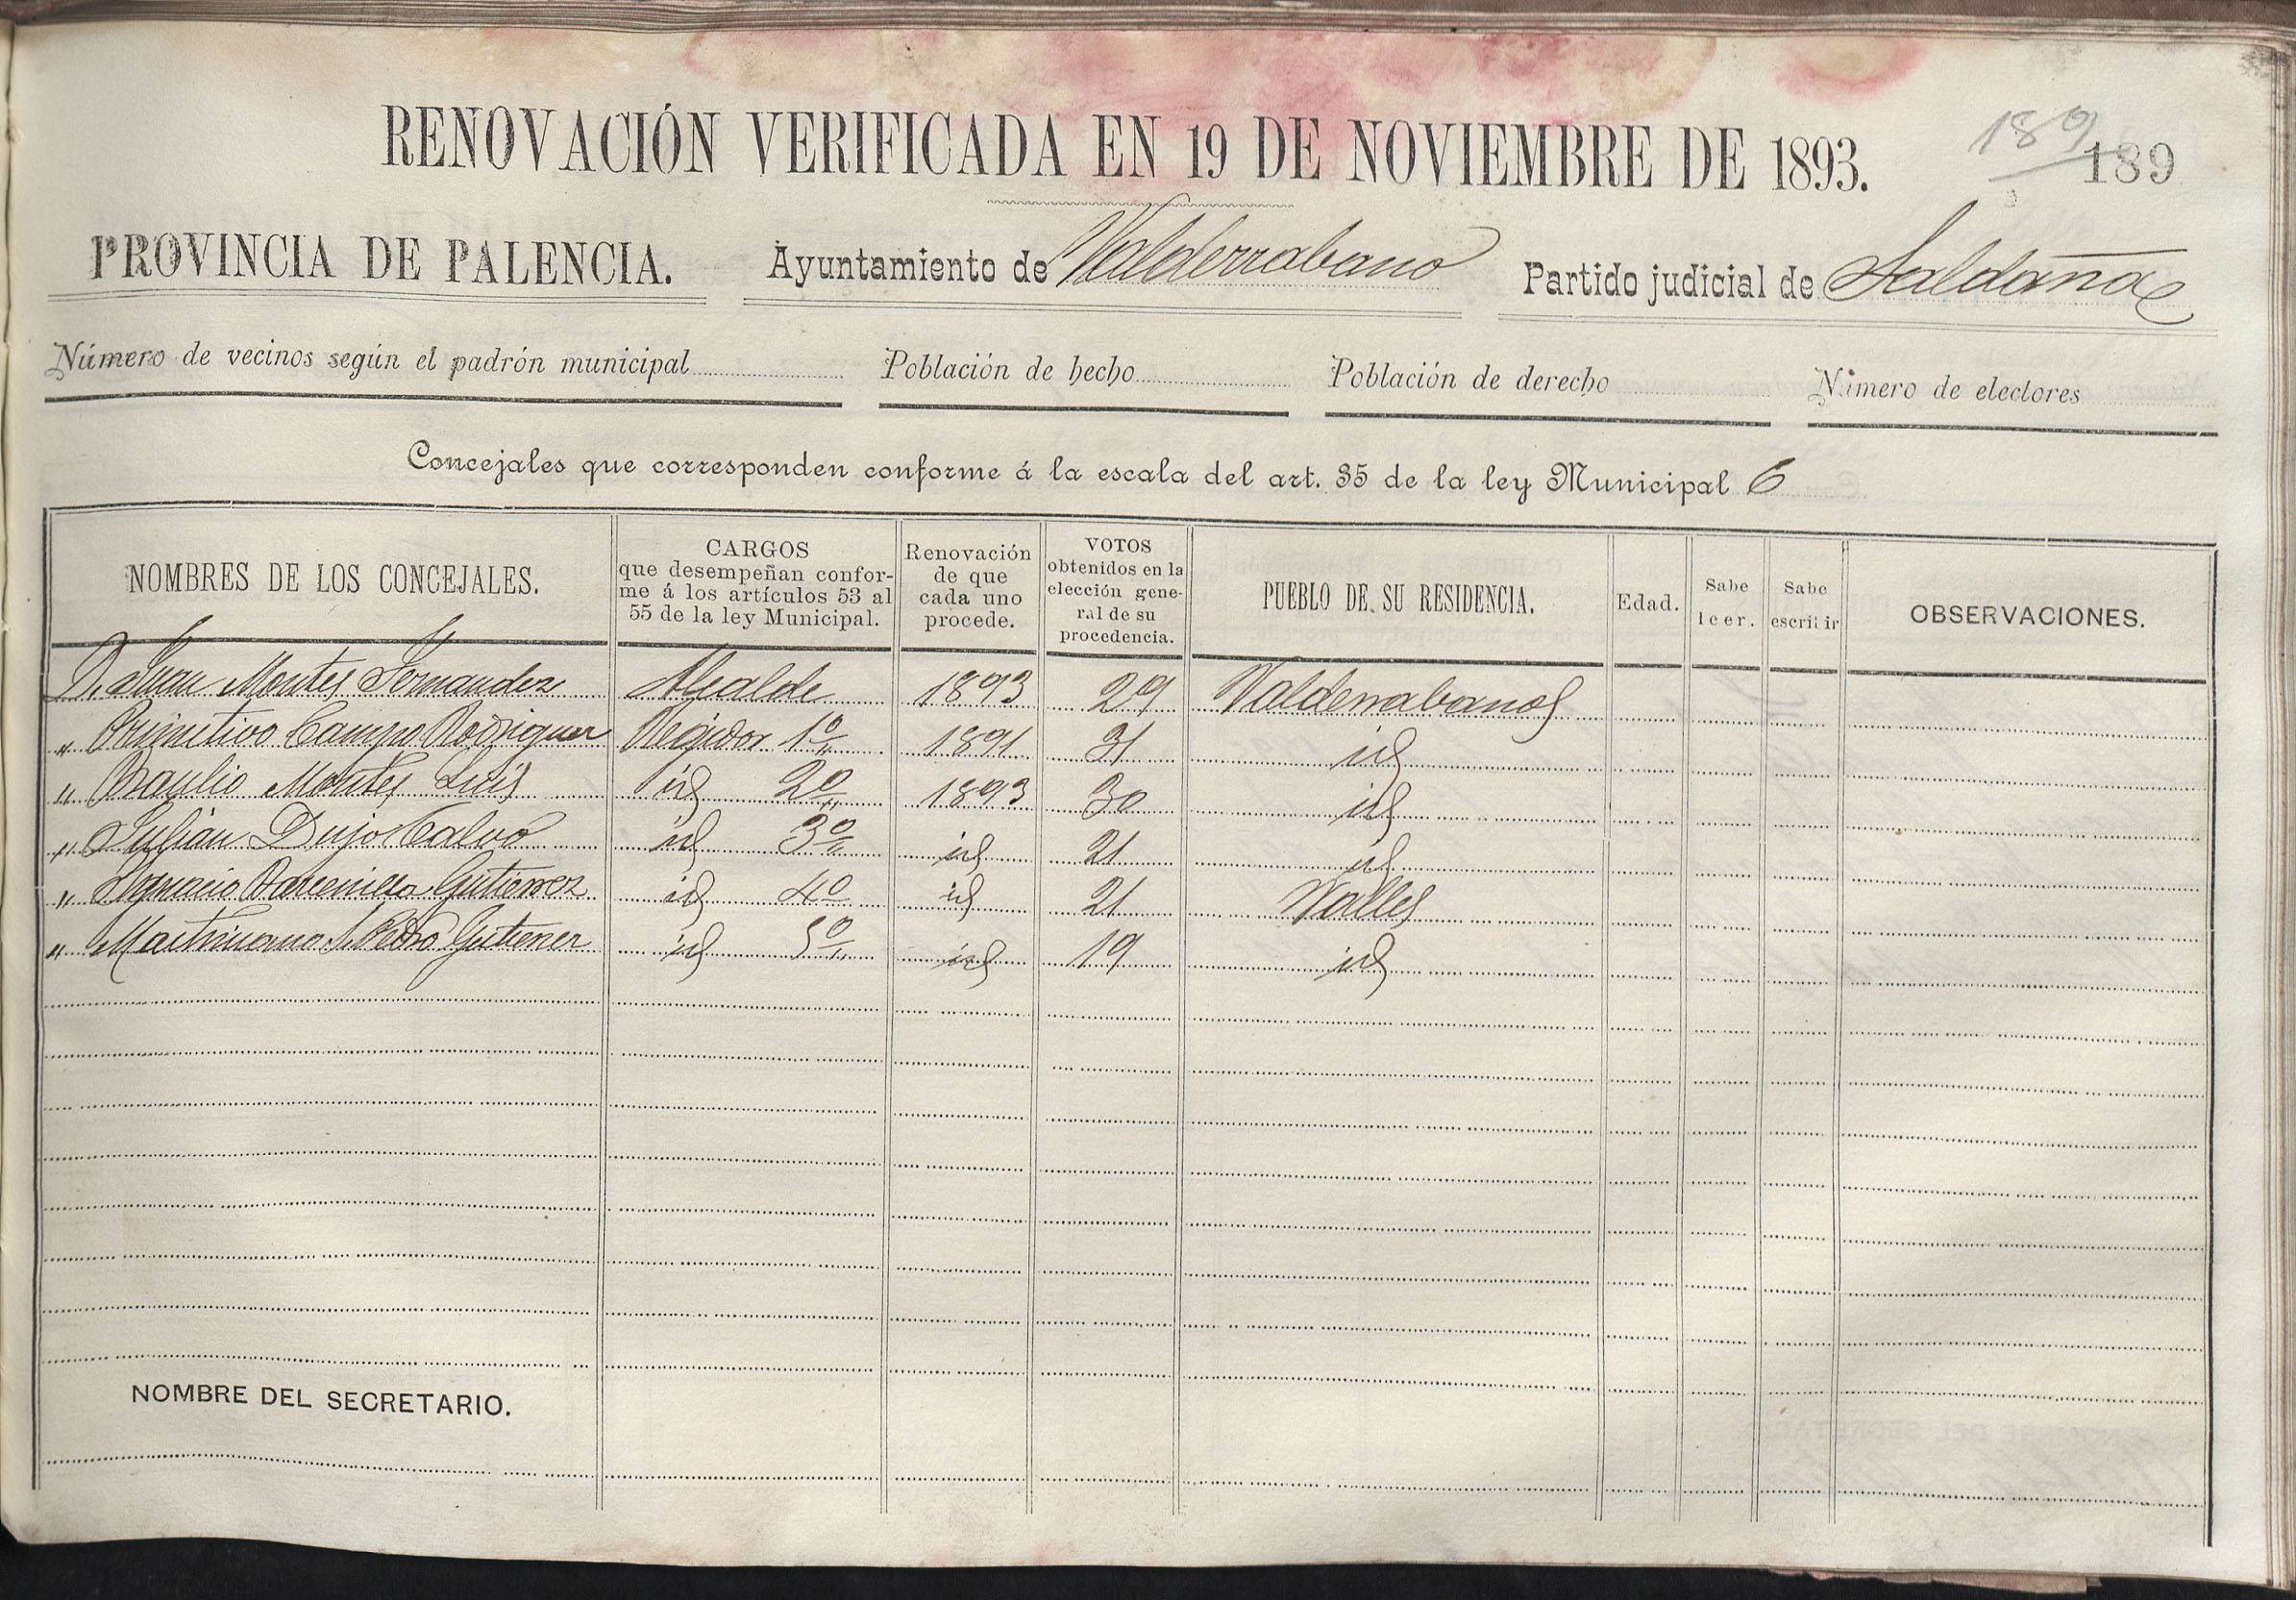 RENOVACIÓN VERIFICADA EN 19 DE NOVIEMBRE DE 1893.
189
189
PROVINCIA DE PALENCIA. Ayuntamiento de Valderrabano Partido judicial de Saldaña
Número de vecinos según el padrón municipal Población de hecho Población de derecho Número de electores
Concejales que corresponden conforme á la escala del art. 35 de la ley Municipal 6
NOMBRES DE LOS CONCEJALES. CARGOS que desempeñan conforme á los artículos 53 al 55 de la ley Municipal. Renovación de que cada uno procede. VOTOS obtenidos en la elección general de su procedencia. PUEBLO DE SU RESIDENCIA. Edad. Sabe leer. Sabe escribir OBSERVACIONES.
D. Juan Montes Fernandez Alcalde 1893 29 Valderrabanos
" Primitivo Campo Rodriguez Regidor 1º 1891 31 id
" Braulio Montes Luis id 2º 1893 30 id
" Julián Dujo Calvo id 3º id 21 id
" Ignacio Barcenilla Gutierrez id 4º id 21 Valles
" Martiniano S. Pedro Gutierrez id 5º id 19 id
NOMBRE DEL SECRETARIO.